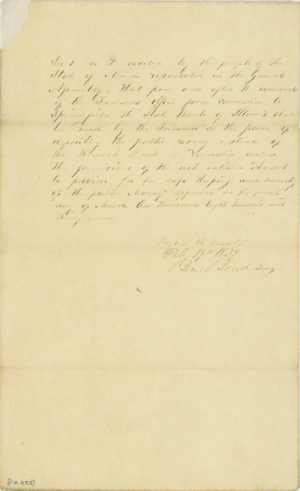 Sec 1 Be it enacted by the people of the
State of Illinois represented in the General
Assembly, That from and after the removal
of the Treasurers office from Vandalia to
Springfield the State Bank of Illinois shall
be used by the Treasurer as the place of
depositing the public money instead of
the Branch Bank at Vandalia under
the provisions of the act entitled An act
to provide for the safe keeping and security
of the public Money approved on the fourth
day of March One thousand Eight hundred and
thirty
Feby 1839
Bond Secy